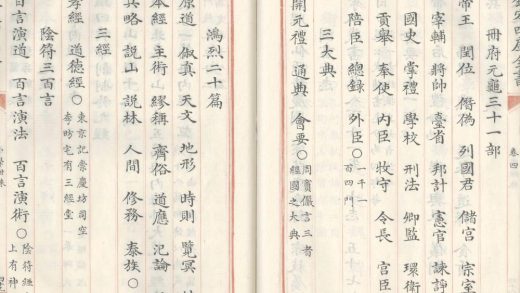 四庫全書
卷四
冊府元龜三十一部
帝王 閏位 僭偽 列國君 儲宮 宗室
宰輔 將帥 臺省 邦計 憲官 諫諍
國史 掌禮 學校 刑法 卿監 環衛
貢舉 奉使 內臣 牧守 令長 宮臣
陪臣 總錄 外臣○一千一
百四門
三大典
開元禮 通典 會要○周竇儼言三者
經國之大典
鴻烈二十篇
原道 俶真 天文 地形 時則 覽冥
本經 主術 繆稱 齊俗 道應 氾論
兵略 說山 說林 人間 修務 泰族○
三經
內經 道德經○東京記崇慶坊司空
李昉宅有三經堂
陰符三百言
百言演道 百言演法 百言演術○陰符經
上有神